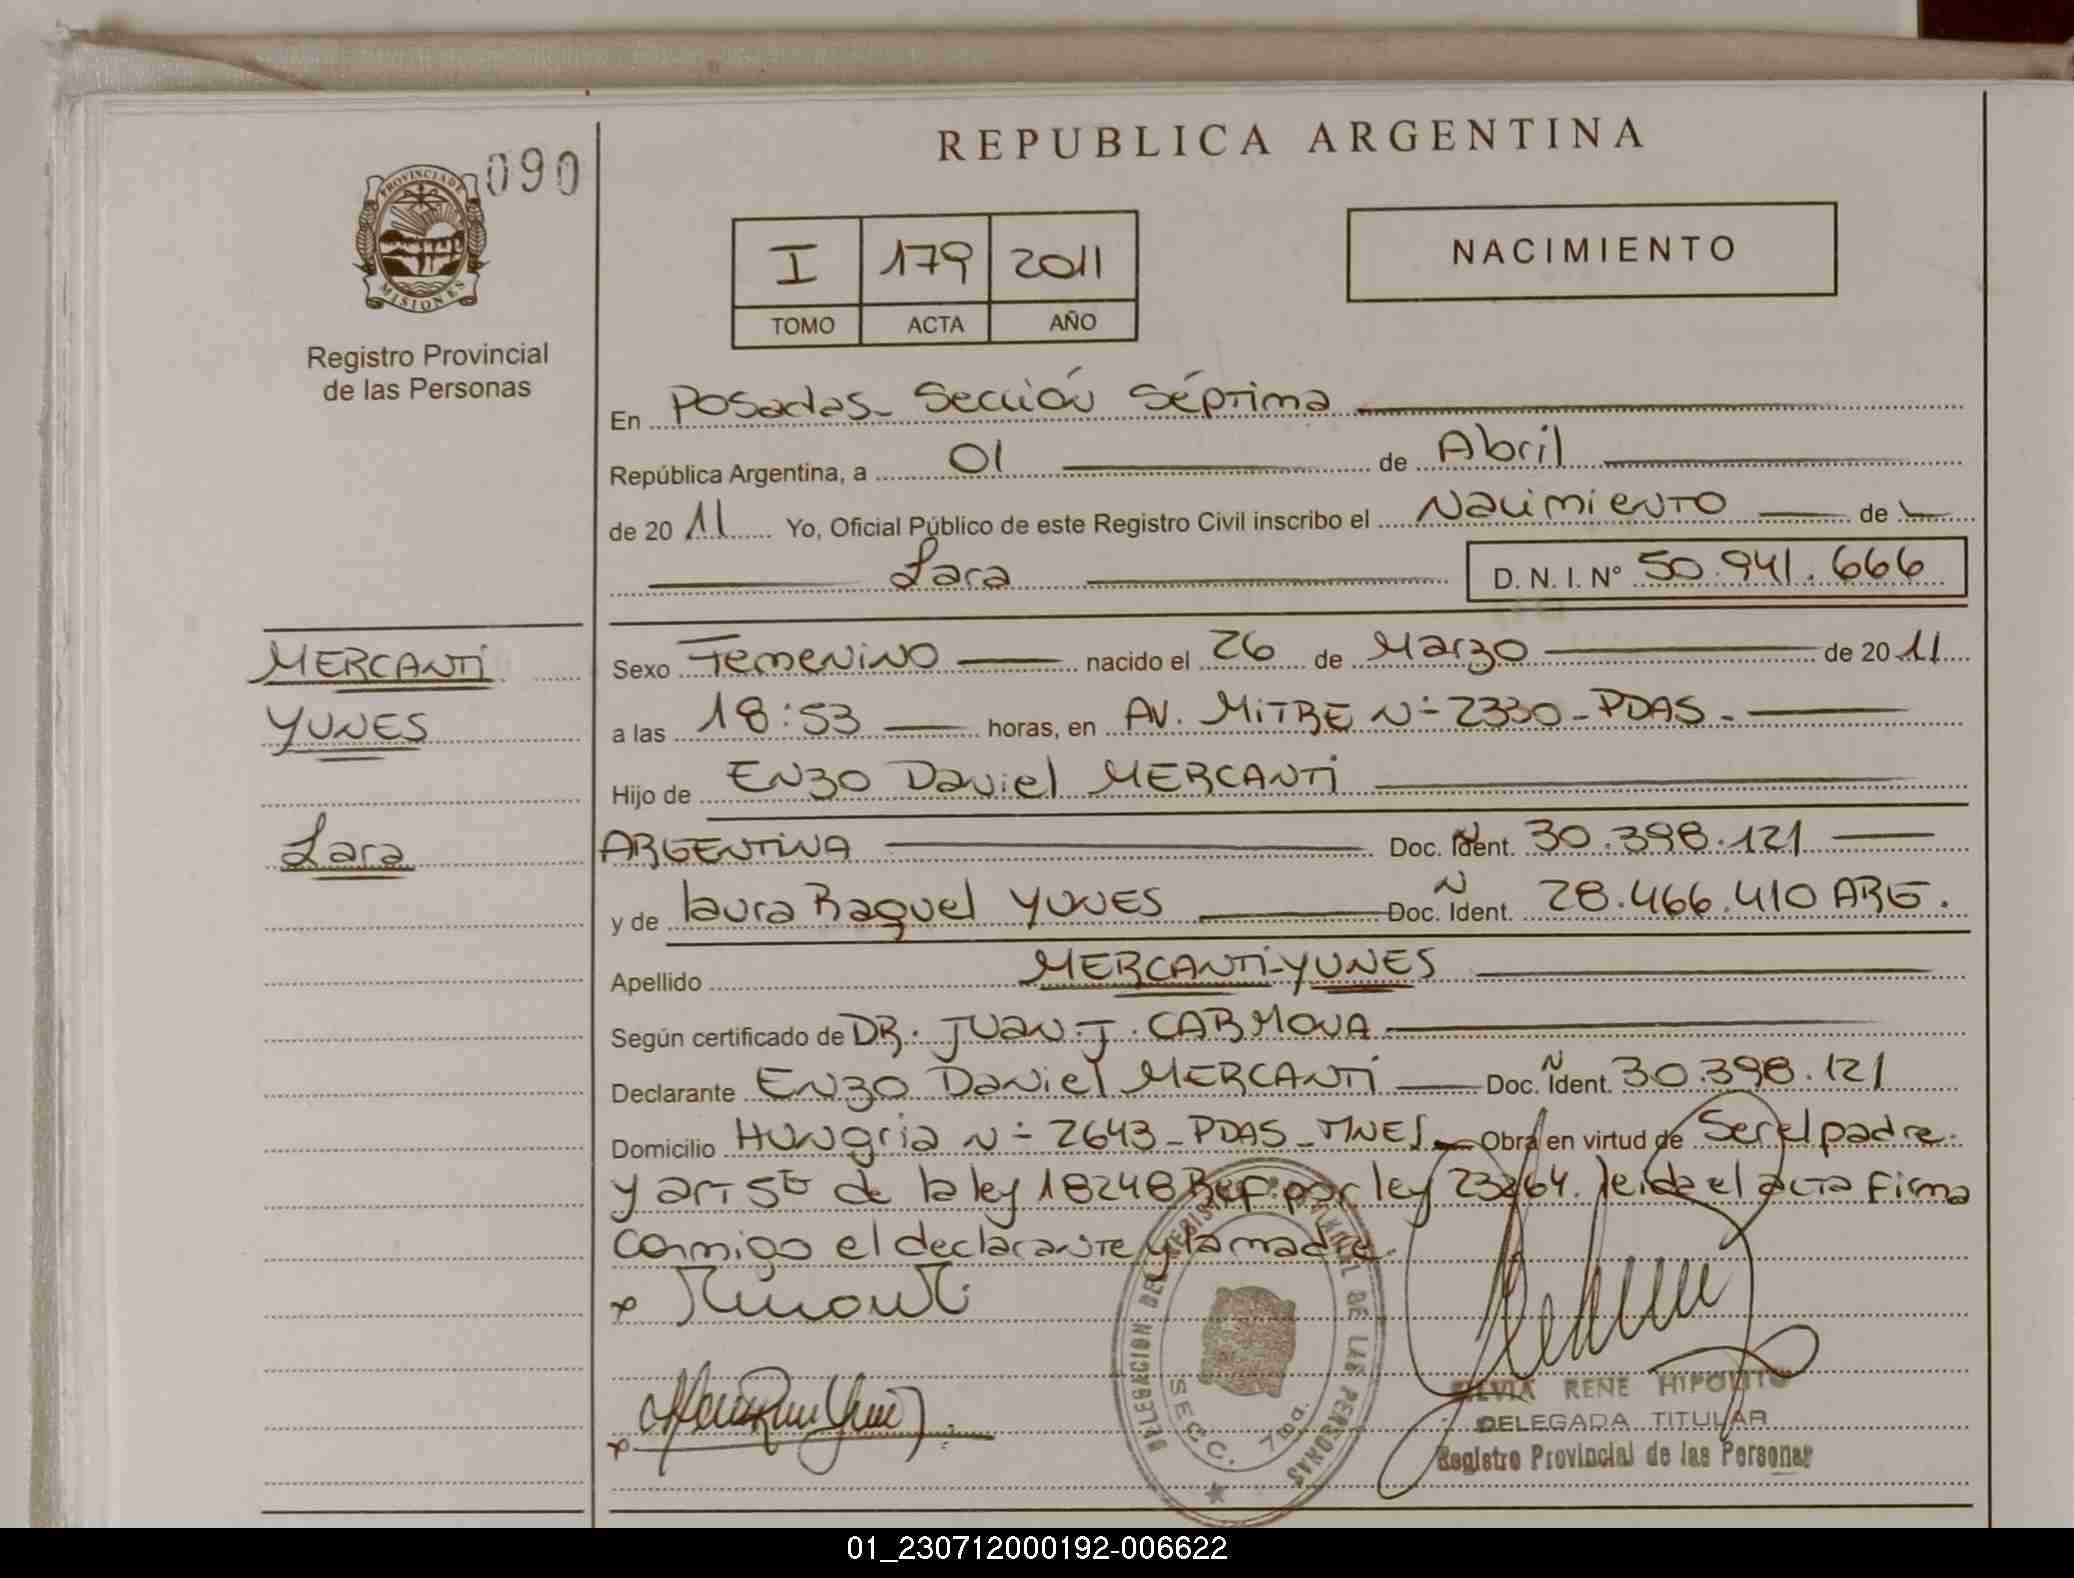 REPUBLICA ARGENTINA
090
PROVINCIA DE
MISIONES
Registro Provincial
de las Personas
I 179 2011
TOMO ACTA AÑO
NACIMIENTO
En Posadas - Sección Séptima
República Argentina, a 01 de Abril
de 2011 Yo, Oficial Público de este Registro Civil inscribo el Nacimiento de
Lara D. N. I. N° 50.941.666
MERCANTI
YUNES
Lara
Sexo Femenino nacido el 26 de Marzo de 2011
a las 18:53 horas, en AV. MITRE N° 2330 - PDAS -
Hijo de Enzo Daniel MERCANTI
ARGENTINA Doc. N Ident. 30.398.121
y de laura Raquel YUNES Doc. N Ident. 28.466.410 ARG.
Apellido MERCANTI-YUNES
Según certificado de DR. JUAN J. CARMONA
Declarante Enzo Daniel MERCANTI Doc. N Ident. 30.398.121
Domicilio Hungria N° 2643 - PDAS - MNES Obra en virtud de Ser el padre
y art 5to de la ley 18248 Ref. por ley 23264. leida el acta firma
conmigo el declarante y la madre.
DELEGACION DEL REGISTRO PROVINCIAL DE LAS PERSONAS
SECC. 7ma.
SILVIA RENE HIPOLITO
DELEGADA TITULAR
Registro Provincial de las Personas
01_230712000192-006622